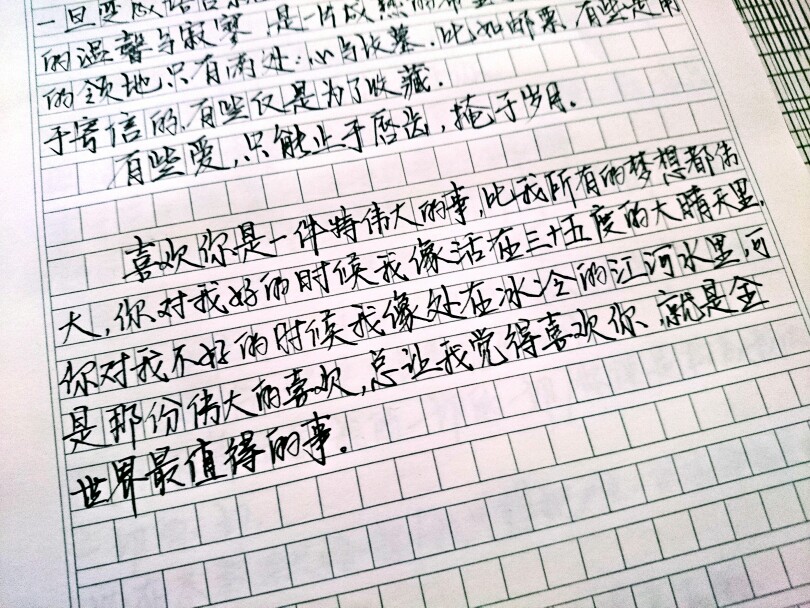 一旦变成语言就
的温馨与寂寥,是一片成熟的希望
的领地只有两处:心与坟墓.比如邮票,有些是用
于寄信的,有些仅是为了收藏.
有些爱,只能止于唇齿,掩于岁月.
喜欢你是一件特伟大的事,比我所有的梦想都伟
大,你对我好的时候我像活在三十五度的大晴天里,
你对我不好的时候我像处在冰冷的江河水里,可
是那份伟大的喜欢,总让我觉得喜欢你、就是全
世界最值得的事.